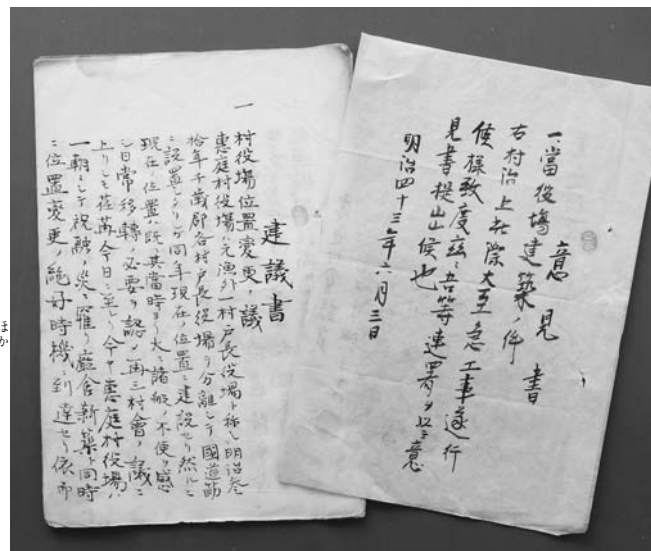 意見書
一、當役場建築ノ件
右村治上此際大至急工事遂行
候樣致度茲ニ吾等連署ヲ以テ意
見書提出候也
明治四十三年六月三日
建議書
一 村役場位置変更ノ議
惠庭村役場ハ元漁外一村戸長役場ト称シ明治参
拾年千歳郡各村戸長役場ヲ分離シテ國道筋
ニ設置シタリシヲ同年現在ノ位置ニ建設セリ然ルニ
現在ノ位置ハ既ニ其當時ヨリ大ニ諸般ノ不便ヲ感
シ日常移轉ノ必要ヲ認メ再三村會ノ議ニ
上リシモ荏苒今日ニ至レリ今ヤ惠庭村役場ハ
一朝ニシテ祝融ノ災ニ罹リ廳舎新築ト同時
ニ位置変更ノ絶好時機ニ到達セリ依而
ほか